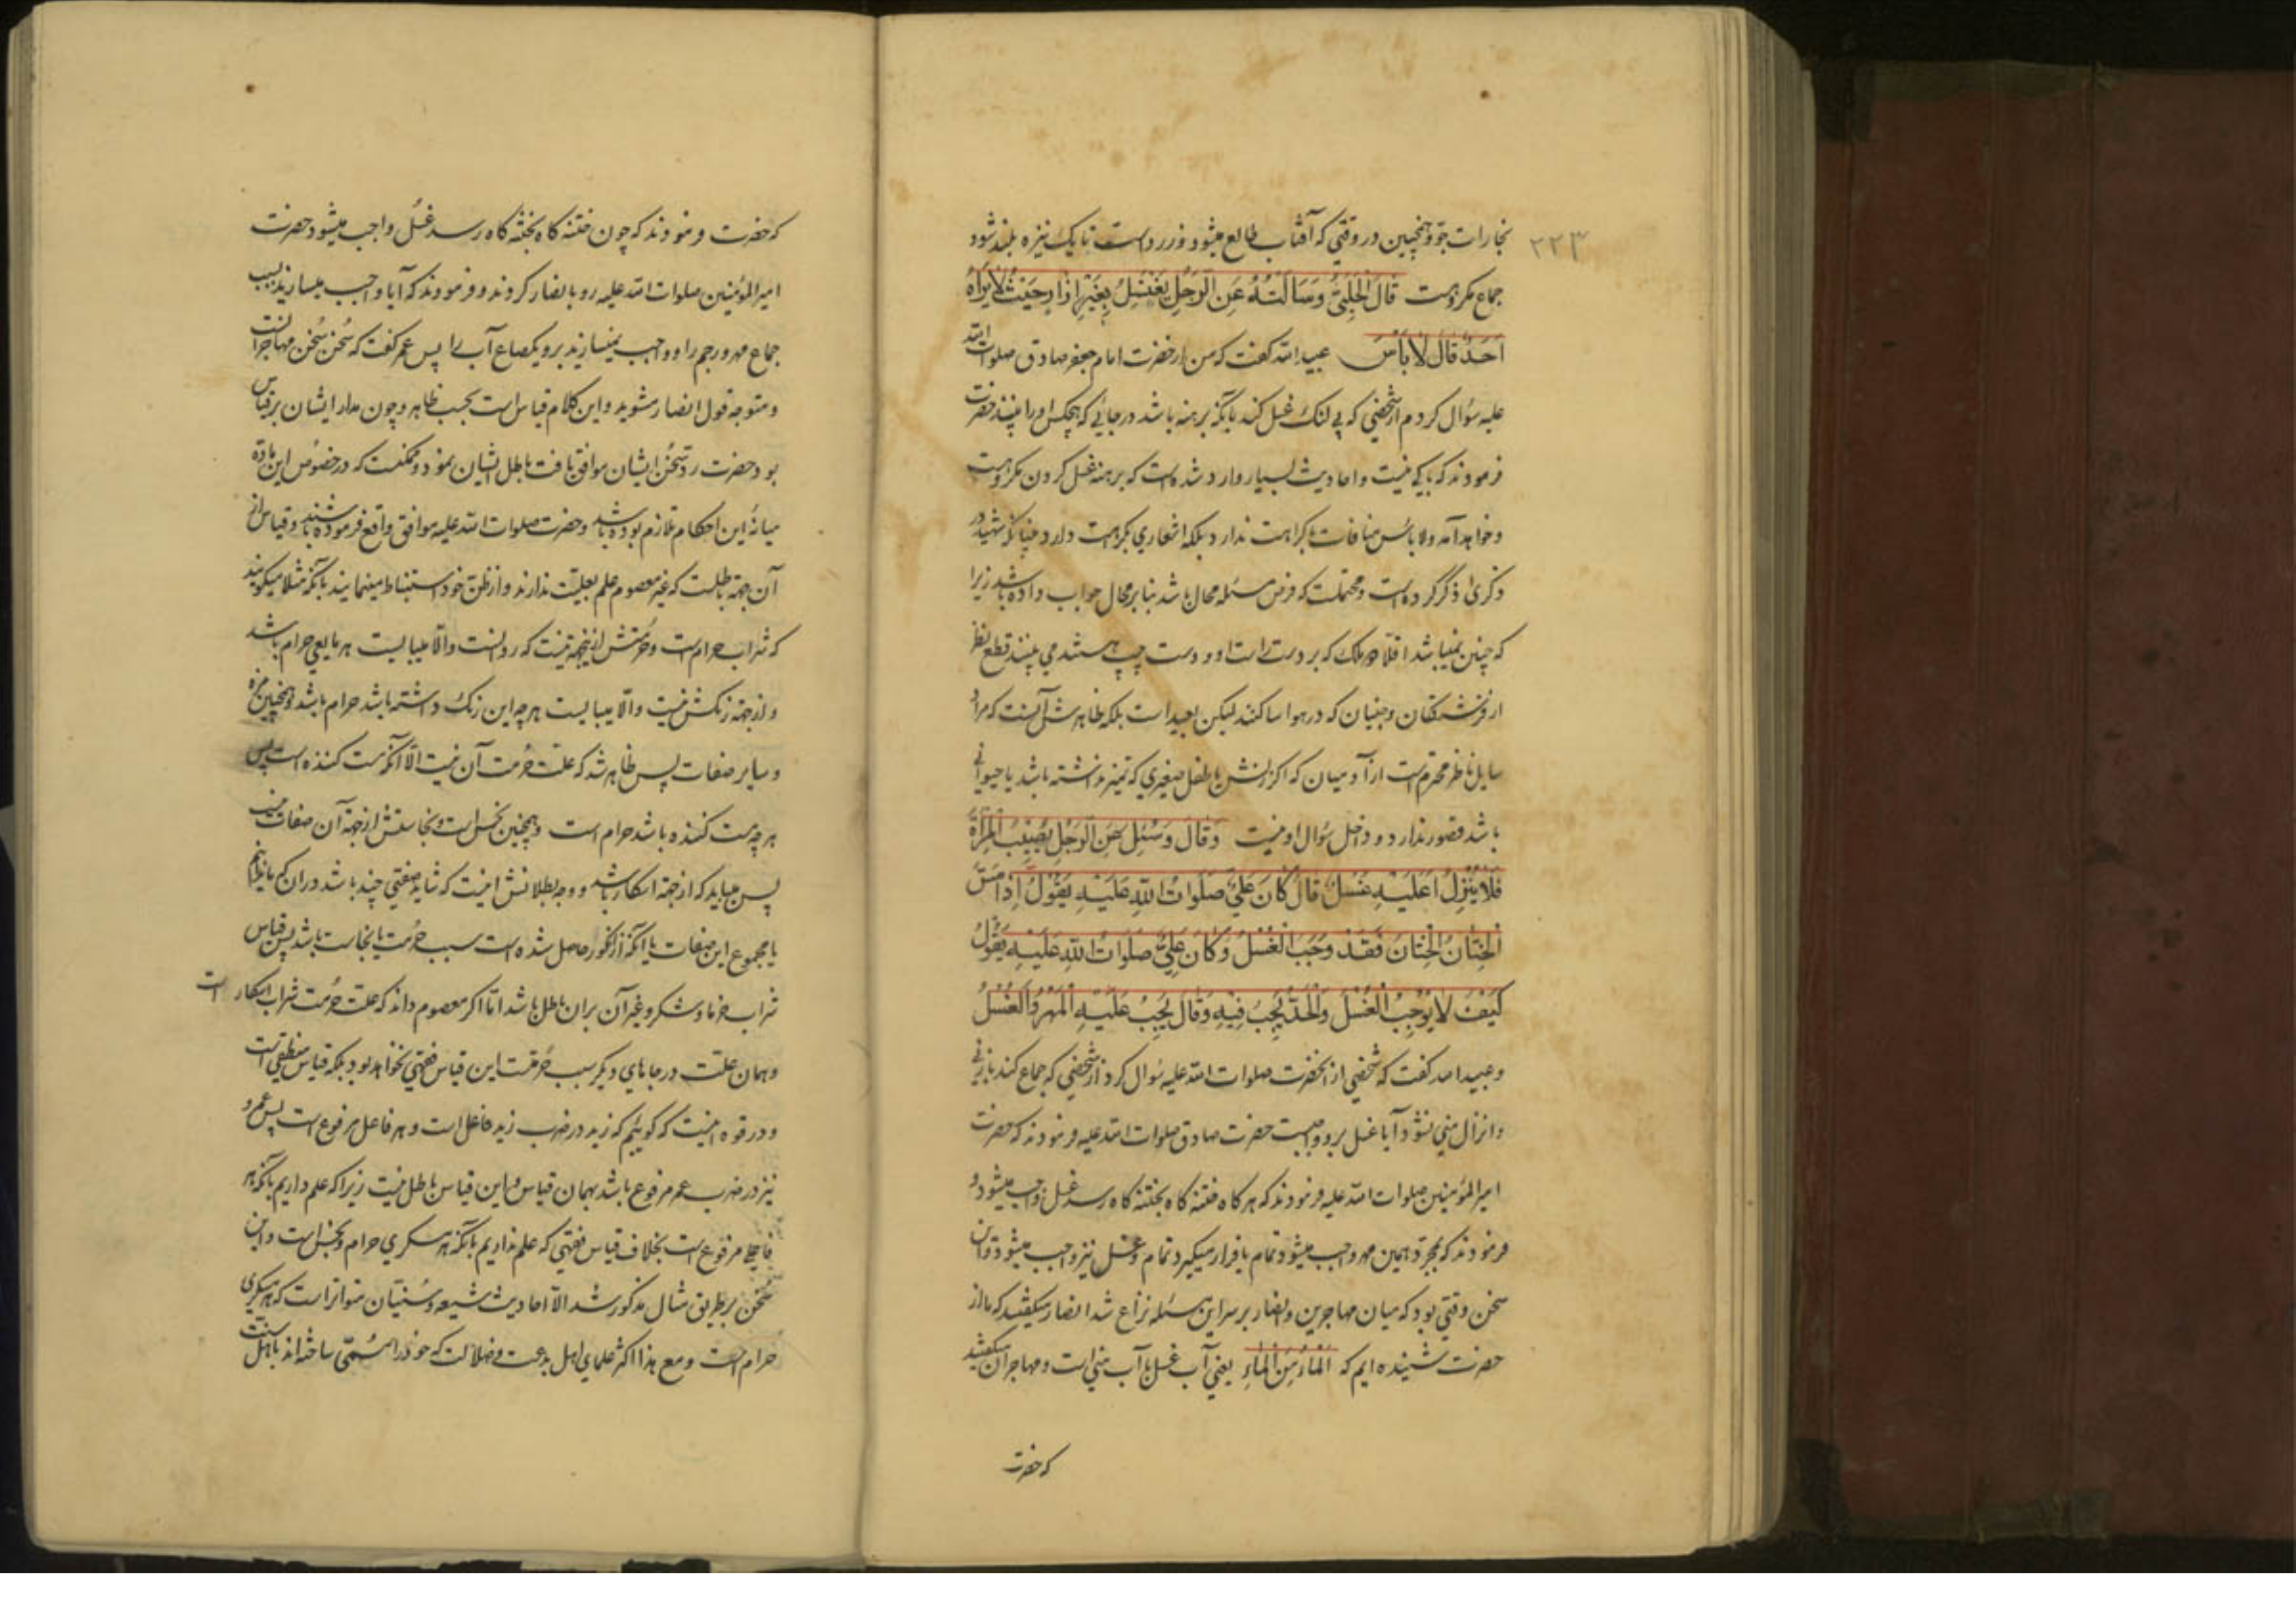 ۲۲۳
بخارات جو و همچنین در وقتی که آفتاب طالع میشود و زرد است تا یک نیزه بلند شود
جماع مکروهست قَالَ الْحَلَبِيُّ وَسَأَلْتُهُ عَنِ الرَّجُلِ يَغْتَسِلُ بِغَيْرِ إِزَارٍ حَيْثُ لَا يَرَاهُ
أَحَدٌ قَالَ لَا بَأْسَ عبید الله گفت که من از حضرت امام جعفر صادق صلوات الله
علیه سؤال کردم از شخصی که بی لنگ غسل کند با آنکه برهنه باشد در جائی که هیچکس او را نبیند حضرت
فرمودند که باکی نیست و احادیث بسیار وارد شده است که برهنه غسل کردن مکروهست
و خواهد آمد و لا بأس منافات با کراهت ندارد بلکه اشعاری بکراهت دارد چنانکه شهید در
ذکری ذکر کرده است و محتملست که فرض مسئله محال باشد بنابر محال جواب داده باشد زیرا
که چنین نمیباشد اقلا دو ملک که بر دست راست او و دست چپ هستند می بینند قطع نظر
از فرشتگان و جنیان که در هوا ساکنند لیکن بعید است بلکه ظاهرش آنست که مراد
سایل ناظر محترم است از آدمیان که اگر زنش یا طفل صغیری که تمیز نداشته باشد یا حیوانی
باشد قصور ندارد و داخل سؤال او نیست وَقَالَ وَسُئِلَ عَنِ الرَّجُلِ يُصِيبُ الْمَرْأَةَ
فَلَا يُنْزِلُ أَعَلَيْهِ غُسْلٌ قَالَ كَانَ عَلِيٌّ صَلَوَاتُ اللّٰهِ عَلَيْهِ يَقُولُ إِذَا مَسَّ
الْخِتَانُ الْخِتَانَ فَقَدْ وَجَبَ الْغُسْلُ وَكَانَ عَلِيٌّ صَلَوَاتُ اللّٰهِ عَلَيْهِ يَقُولُ
كَيْفَ لَا يُوجِبُ الْغُسْلَ وَالْحَدُّ يَجِبُ فِيهِ وَقَالَ يَجِبُ عَلَيْهِ الْمَهْرُ وَالْغُسْلُ
و عبید الله گفت که شخصی از آنحضرت صلوات الله علیه سؤال کرد از شخصی که جماع کند با زنی
و انزال منی نشود آیا غسل برو واجبست حضرت صادق صلوات الله علیه فرمودند که حضرت
امیر المؤمنین صلوات الله علیه فرمودند که هر گاه ختنه گاه بختنه گاه رسد غسل واجب میشود و
فرمودند که بمجرد همین مهر واجب میشود تمام یا قرار میگیرد تمام و غسل نیز واجب میشود و آن
سخن وقتی بود که میان مهاجرین و انصار بر سر این مسئله نزاع شد انصار میگفتند که ما از
حضرت شنیده ایم که الْمَاءُ مِنَ الْمَاءِ یعنی آب غسل با آب منی است و مهاجران میگفتند
که حضرت
که حضرت فرمودند که چون ختنه گاه بختنه گاه رسد غسل واجب میشود حضرت
امیر المؤمنین صلوات الله علیه رو بانصار کردند و فرمودند که آیا واجب میسازند بسبب
جماع مهر و رجم را و واجب نمیسازند برو یکصاع آب را پس عمر گفت که سخن سخن مهاجرانست
و متوجه قول انصار مشوید و این کلام قیاس است بحسب ظاهر و چون مدار ایشان بر قیاس
بود حضرت رد سخن ایشان موافق یافت باطل ایشان نمود و ممکنست که در خصوص این ماده
میانهٔ این احکام تلازم بوده باشد و حضرت صلوات الله علیه موافق واقع فرموده باشند و قیاس از
آن جهة باطلست که غیر معصوم علم بعلیت ندارند و از ظن خود استنباط مینمایند با آنکه مثلا میگویند
که شراب حرام است و حرمتش از اینجهة نیست که روانست والّا میبایست هر مایعی حرام باشد
و از جهة رنگش نیست والّا میبایست هر چه این رنگ داشته باشد حرام باشد و همچنین مزه
و سایر صفات پس ظاهر شد که علت حرمت آن نیست الّا آنکه مست کننده است پس
هر چه مست کننده باشد حرام است و همچنین نجس است و نجاستش از جهة آن صفات نیست
پس میباید که از جهة اسکار باشد و وجه بطلانش اینست که شاید صفتی چند باشد در آن که ما ندانیم
یا مجموع این صفات یا آنکه از انگور حاصل شده است سبب حرمت یا نجاست باشد پس قیاس
شراب خرما و شکر و غیر آن بران باطل باشد امّا اگر معصوم داند که علت حرمت شراب اسکار است
و همان علت در جاهای دیگر سبب حرمتست این قیاس فقهی نخواهد بود بلکه قیاس منطقی است
و در قوه اینست که گوئیم که زید در ضرب زید فاعل است و هر فاعل مرفوع است پس عمرو
نیز در ضرب عمرو مرفوع باشد بهمان قیاس و این قیاس باطل نیست زیرا که علم داریم بآنکه هر
فاعلی مرفوع است بخلاف قیاس فقهی که علم نداریم بآنکه هر مسکری حرام و نجس است و این
سخن بر طریق مثال مذکور شد الّا احادیث شیعه و سنّیان متواتر است که هر مسکری
حرام است و مع هذا اکثر علمای اهل بدعت و ضلالت که خود را مسمّی ساخته اند باهل سنت